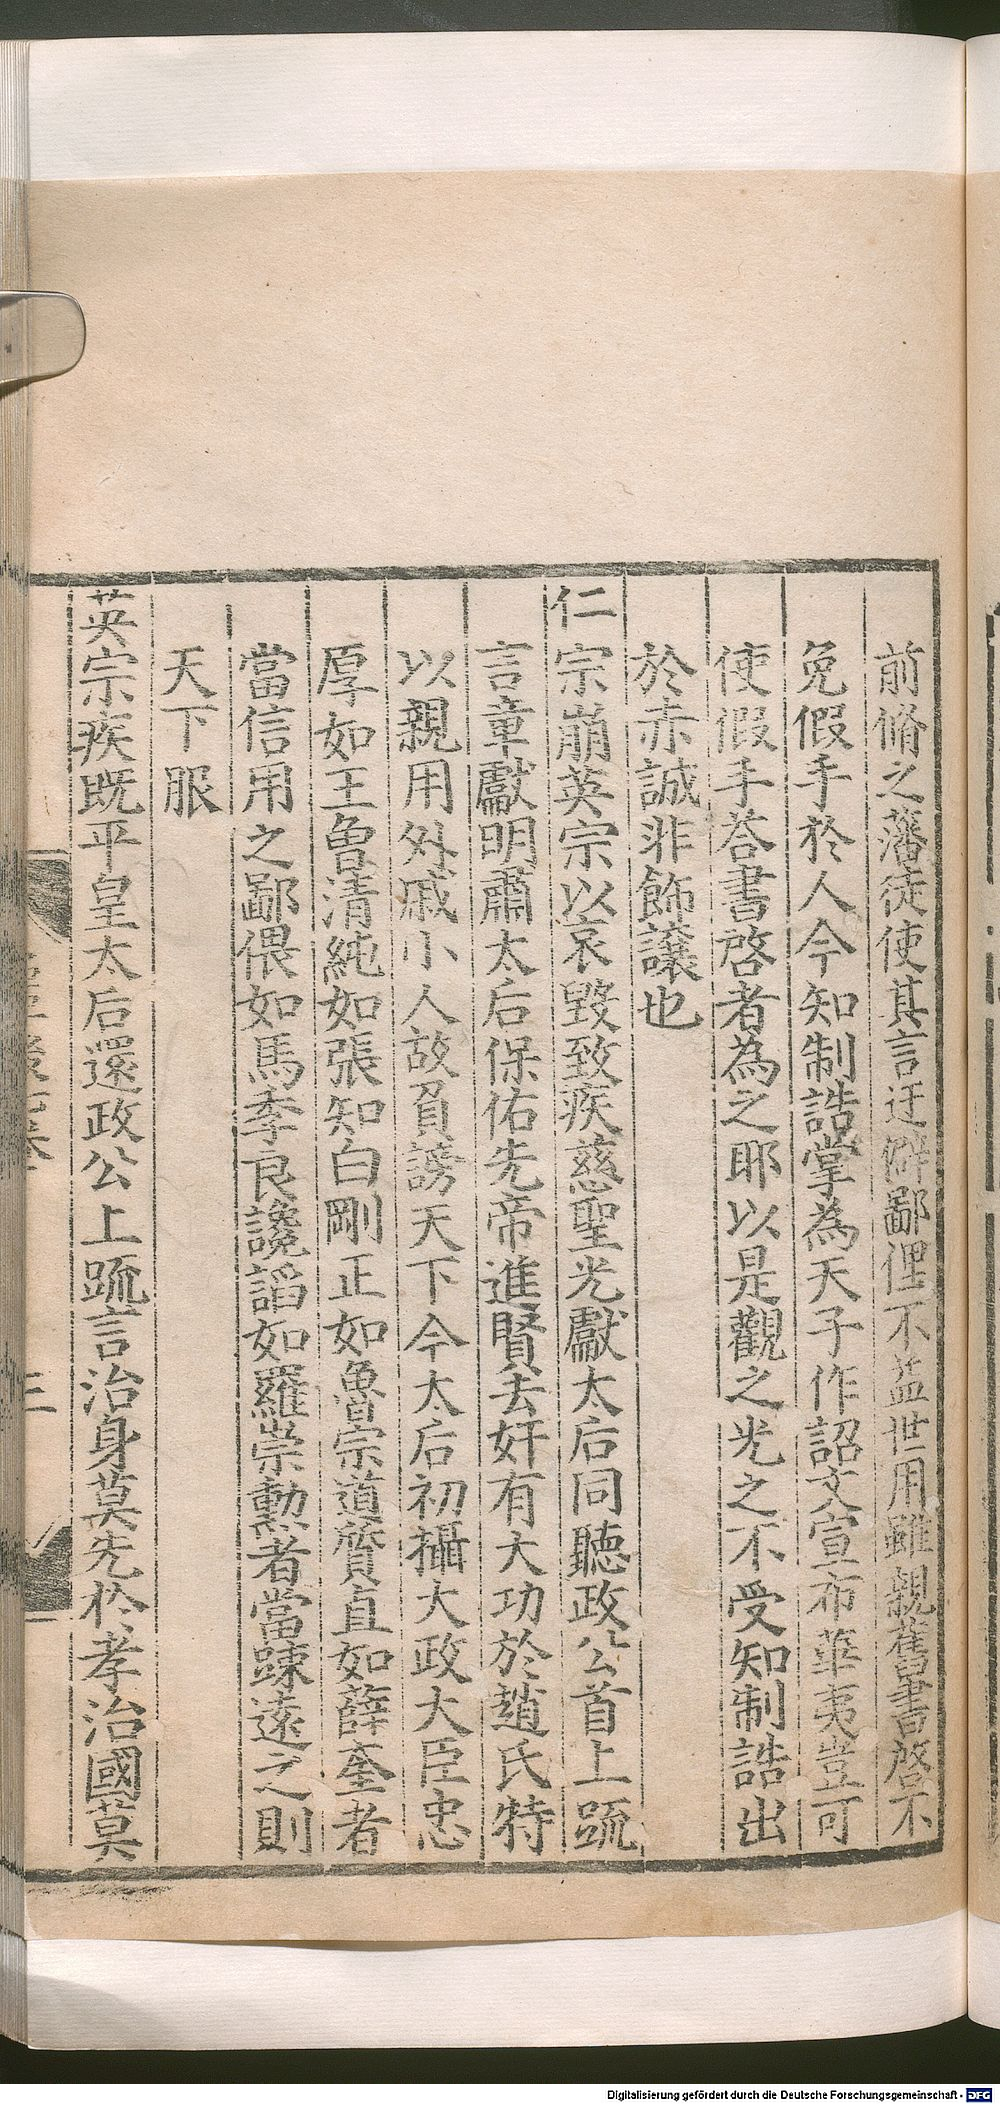 前脩之藩徒使其言迂僻鄙俚不益世用雖親舊書啓不
免假手於人今知制誥掌為天子作詔文宣布華夷豈可
使假手荅書啓者為之耶以是觀之光之不受知制誥出
於赤誠非飾讓也
仁宗崩英宗以哀毀致疾慈聖光獻太后同聽政公首上䟽
言章獻明肅太后保佑先帝進賢去奸有大功於趙氏特
以親用外戚小人故負謗天下今太后初攝大政大臣忠
厚如王曾清純如張知白剛正如魯宗道質直如薛奎者
當信用之鄙偎如馬季良讒謟如羅崇勳者當踈遠之則
天下服
英宗疾既平皇太后還政公上䟽言治身莫先於孝治國莫
三
Digitalisierung gefördert durch die Deutsche Forschungsgemeinschaft - DFG